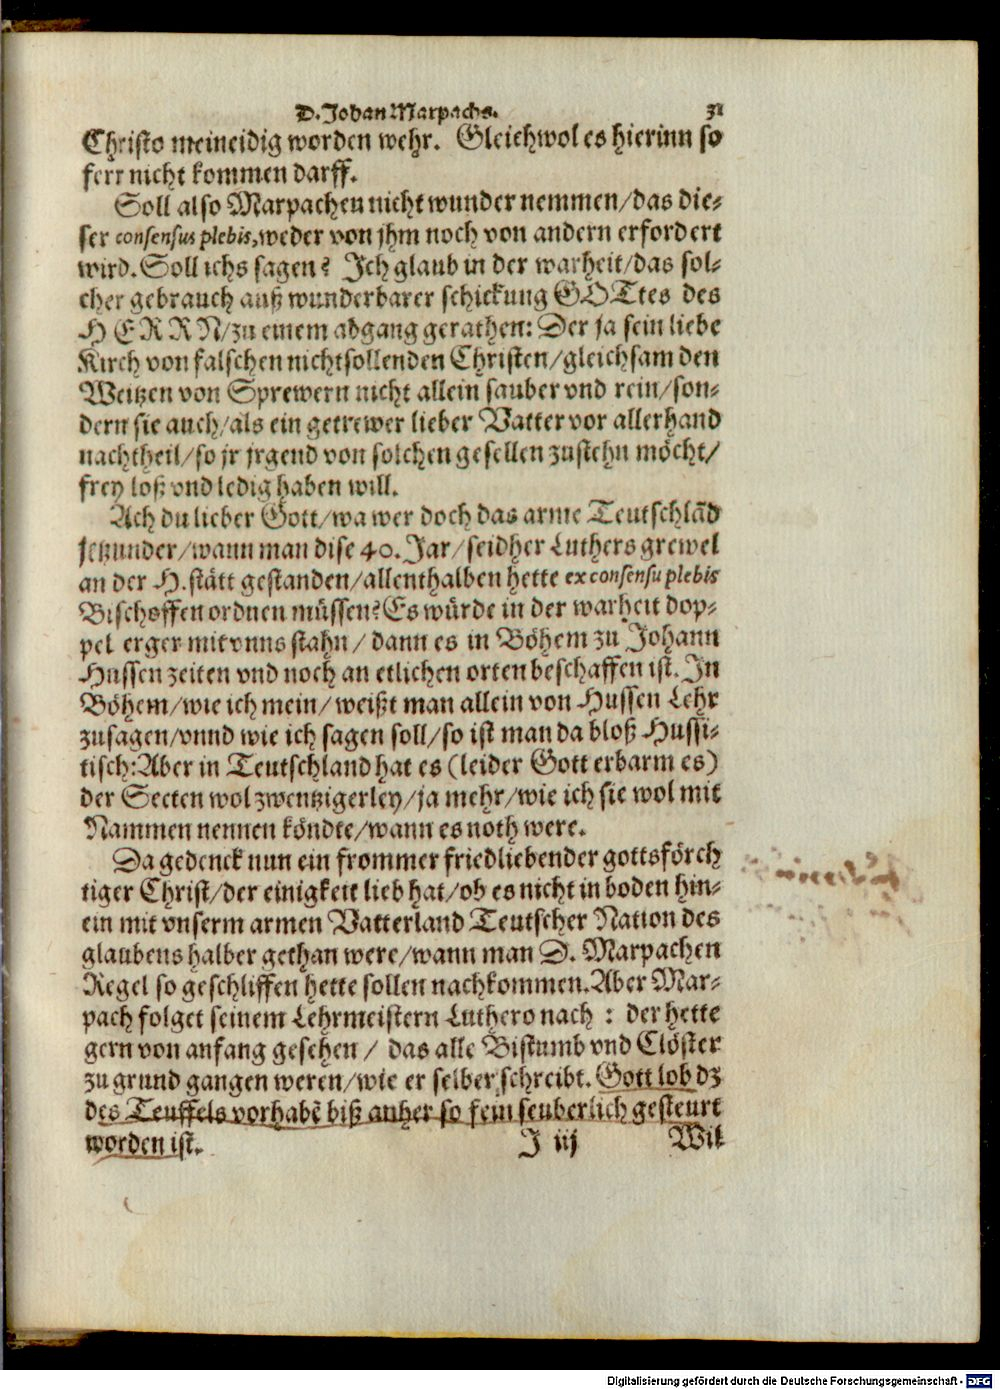 D. Johan Marpachs. 31
Christo meineidig worden wehr. Gleichwol es hierinn so
ferr nicht kommen darff.
Soll also Marpachen nicht wunder nemmen/das die-
ser consensus plebis, weder von jhm noch von andern erfordert
wird. Soll ichs sagen? Ich glaub in der warheit/das sol-
cher gebrauch auß wunderbarer schickung GOTtes des
HERRN/zu einem abgang gerathen: Der ja sein liebe
Kirch von falschen nichtsollenden Christen/gleichsam den
Weitzen von Sprewern nicht allein sauber vnd rein/son-
dern sie auch/als ein getrewer lieber Vatter vor allerhand
nachtheil/so jr jrgend von solchen gesellen zustehn möcht/
frey loß vnd ledig haben will.
Ach du lieber Gott/wa wer doch das arme Teutschlãd
jetzunder/wann man dise 40. Jar/seidher Luthers grewel
an der H. stätt gestanden/allenthalben hette ex consensu plebis
Bischoffen ordnen müssen? Es würde in der warheit dop-
pel erger mit vnns stahn/ dann es in Böhem zu Johann
Hussen zeiten vnd noch an etlichen orten beschaffen ist. In
Böhem/wie ich mein/weißt man allein von Hussen Lehr
zusagen/vnnd wie ich sagen soll/so ist man da bloß Hussi-
tisch: Aber in Teutschland hat es (leider Gott erbarm es)
der Secten wol zwentzigerley/ja mehr/wie ich sie wol mit
Nammen nennen köndte/wann es noth were.
Da gedenck nun ein frommer friedliebender gottsförch
tiger Christ/der einigkeit lieb hat/ob es nicht in boden hin-
ein mit vnserm armen Vatterland Teutscher Nation des
glaubens halber gethan were/wann man D. Marpachen
Regel so geschliffen hette sollen nachkommen. Aber Mar-
pach folget seinem Lehrmeistern Luthero nach : der hette
gern von anfang gesehen / das alle Bistumb vnd Clöster
zu grund gangen weren/wie er selber schreibt. Gott lob dz
des Teuffels vorhabẽ biß anher so fein seuberlich gesteurt
worden ist. J iij Wil
Digitalisierung gefördert durch die Deutsche Forschungsgemeinschaft - DFG